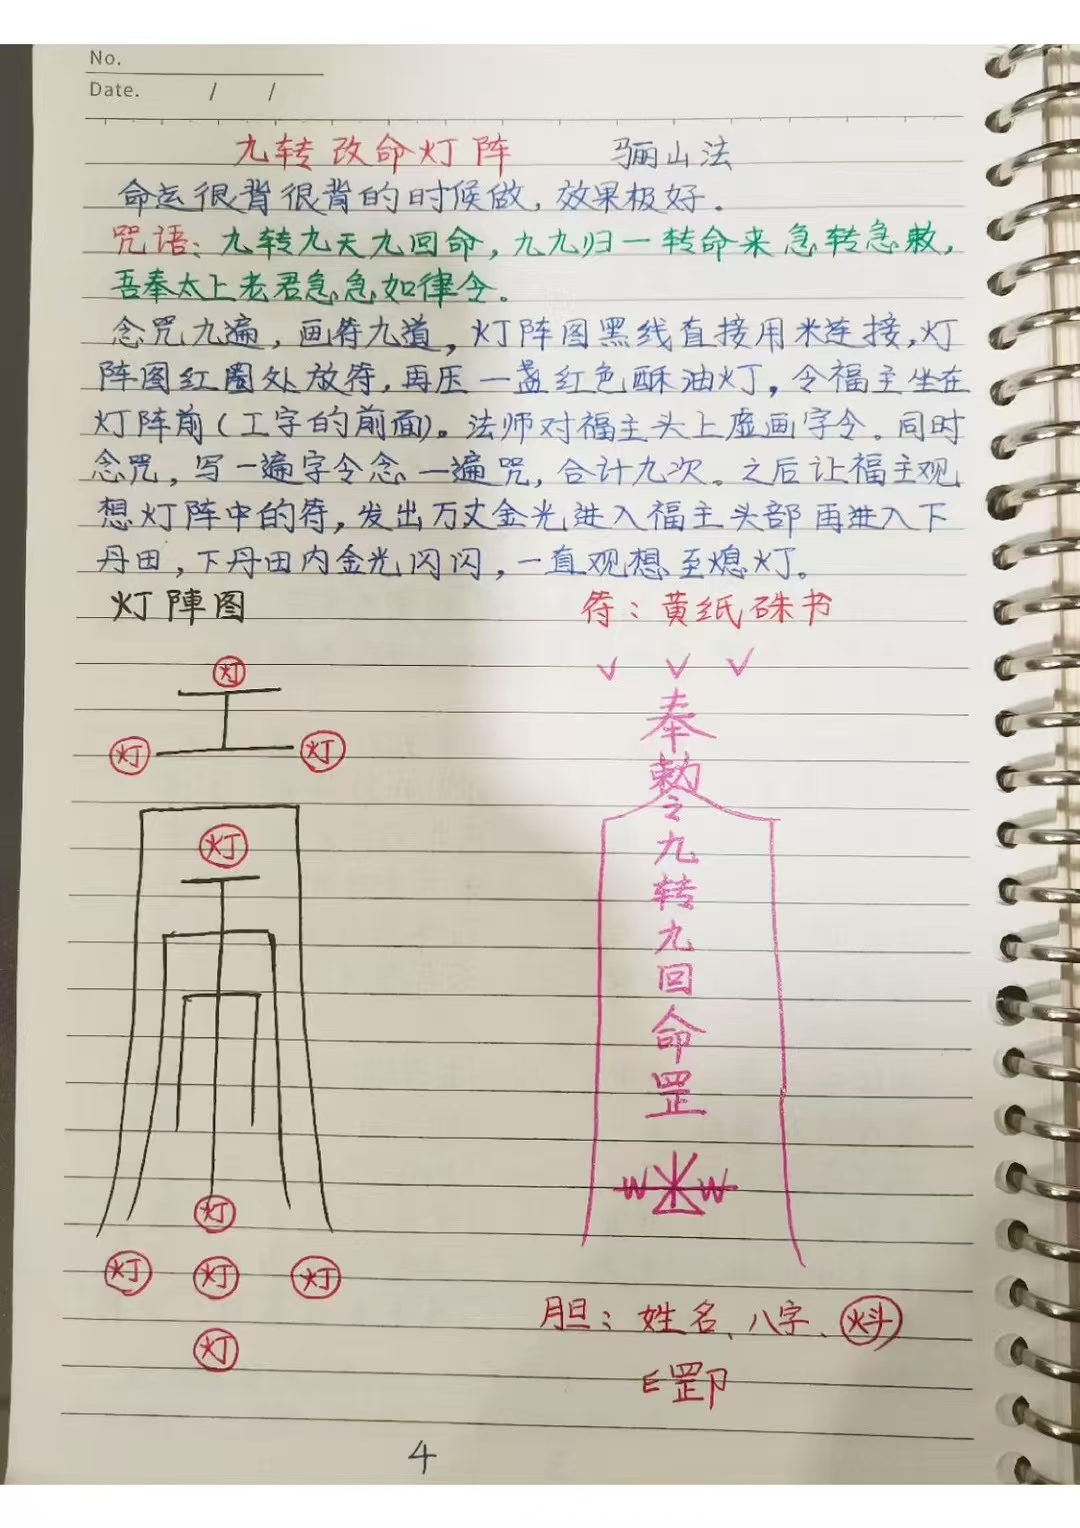 No.
Date. / /
九转改命灯阵 骊山法
命运很背很背的时候做，效果极好.
咒语：九转九天九回命，九九归一转命来急转急敕，
吾奉太上老君急急如律令。
念咒九遍，画符九道，灯阵图黑线直接用米连接，灯
阵图红圈处放符，再压一盏红色酥油灯，令福主坐在
灯阵前（工字的前面）。法师对福主头上虚画字令。同时
念咒，写一遍字令念一遍咒，合计九次。之后让福主观
想灯阵中的符，发出万丈金光进入福主头部再进入下
丹田，下丹田内金光闪闪，一直观想至熄灯。
灯陣图 符：黄纸硃书
灯
灯 灯
灯
灯
灯 灯 灯
灯
奉
敕
令
九
转
九
回
命
罡
胆：姓名、八字、
4